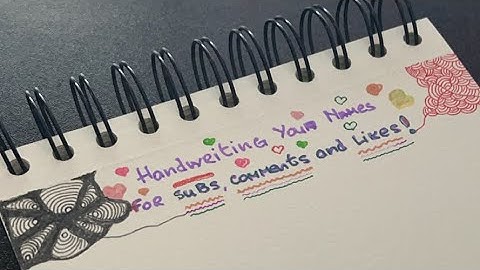 Handwriting Your Names
FOR SUBS, COMMENTS and Likes!